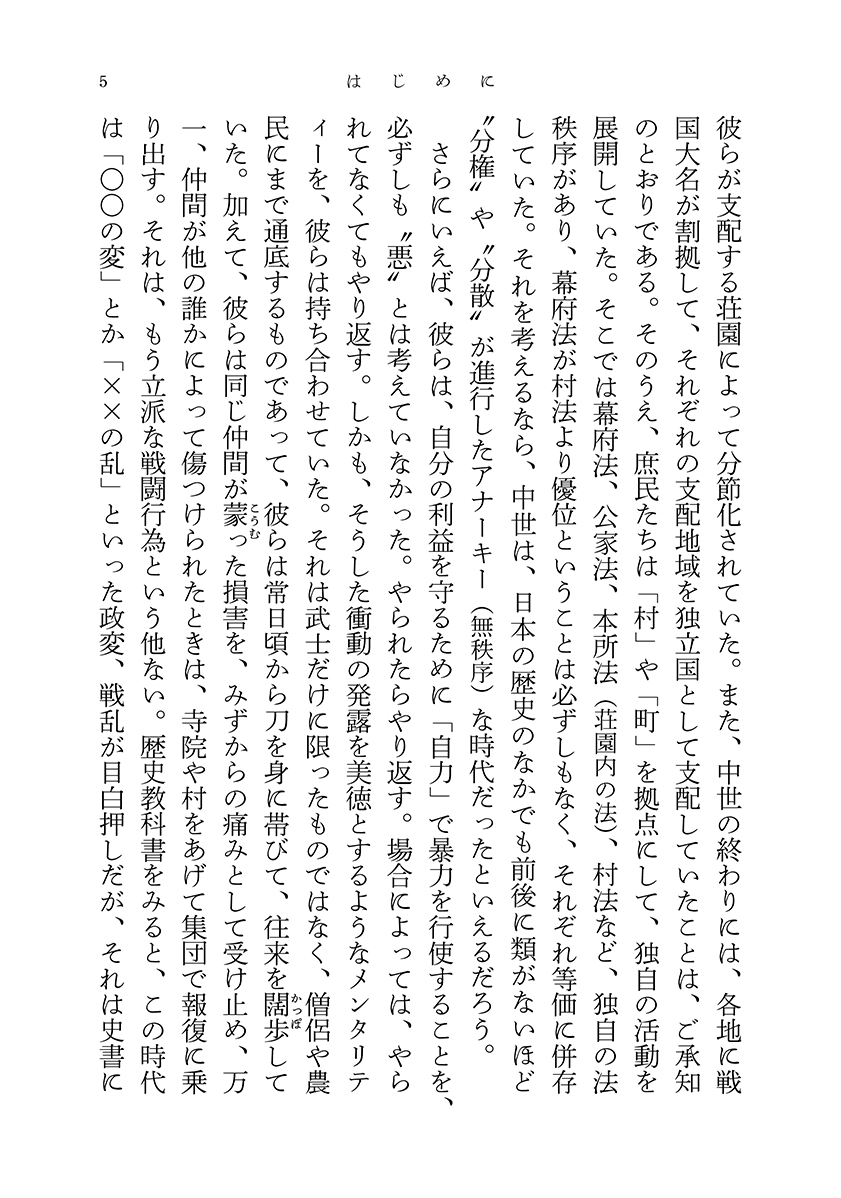 5
はじめに
彼らが支配する荘園によって分節化されていた。また、中世の終わりには、各地に戦
国大名が割拠して、それぞれの支配地域を独立国として支配していたことは、ご承知
のとおりである。そのうえ、庶民たちは「村」や「町」を拠点にして、独自の活動を
展開していた。そこでは幕府法、公家法、本所法（荘園内の法）、村法など、独自の法
秩序があり、幕府法が村法より優位ということは必ずしもなく、それぞれ等価に併存
していた。それを考えるなら、中世は、日本の歴史のなかでも前後に類がないほど
〝分権〟や〝分散〟が進行したアナーキー（無秩序）な時代だったといえるだろう。
さらにいえば、彼らは、自分の利益を守るために「自力」で暴力を行使することを、
必ずしも〝悪〟とは考えていなかった。やられたらやり返す。場合によっては、やら
れてなくてもやり返す。しかも、そうした衝動の発露を美徳とするようなメンタリテ
ィーを、彼らは持ち合わせていた。それは武士だけに限ったものではなく、僧侶や農
民にまで通底するものであって、彼らは常日頃から刀を身に帯びて、往来を闊歩かっぽして
いた。加えて、彼らは同じ仲間が蒙こうむった損害を、みずからの痛みとして受け止め、万
一、仲間が他の誰かによって傷つけられたときは、寺院や村をあげて集団で報復に乗
り出す。それは、もう立派な戦闘行為という他ない。歴史教科書をみると、この時代
は「〇〇の変」とか「××の乱」といった政変、戦乱が目白押しだが、それは史書に